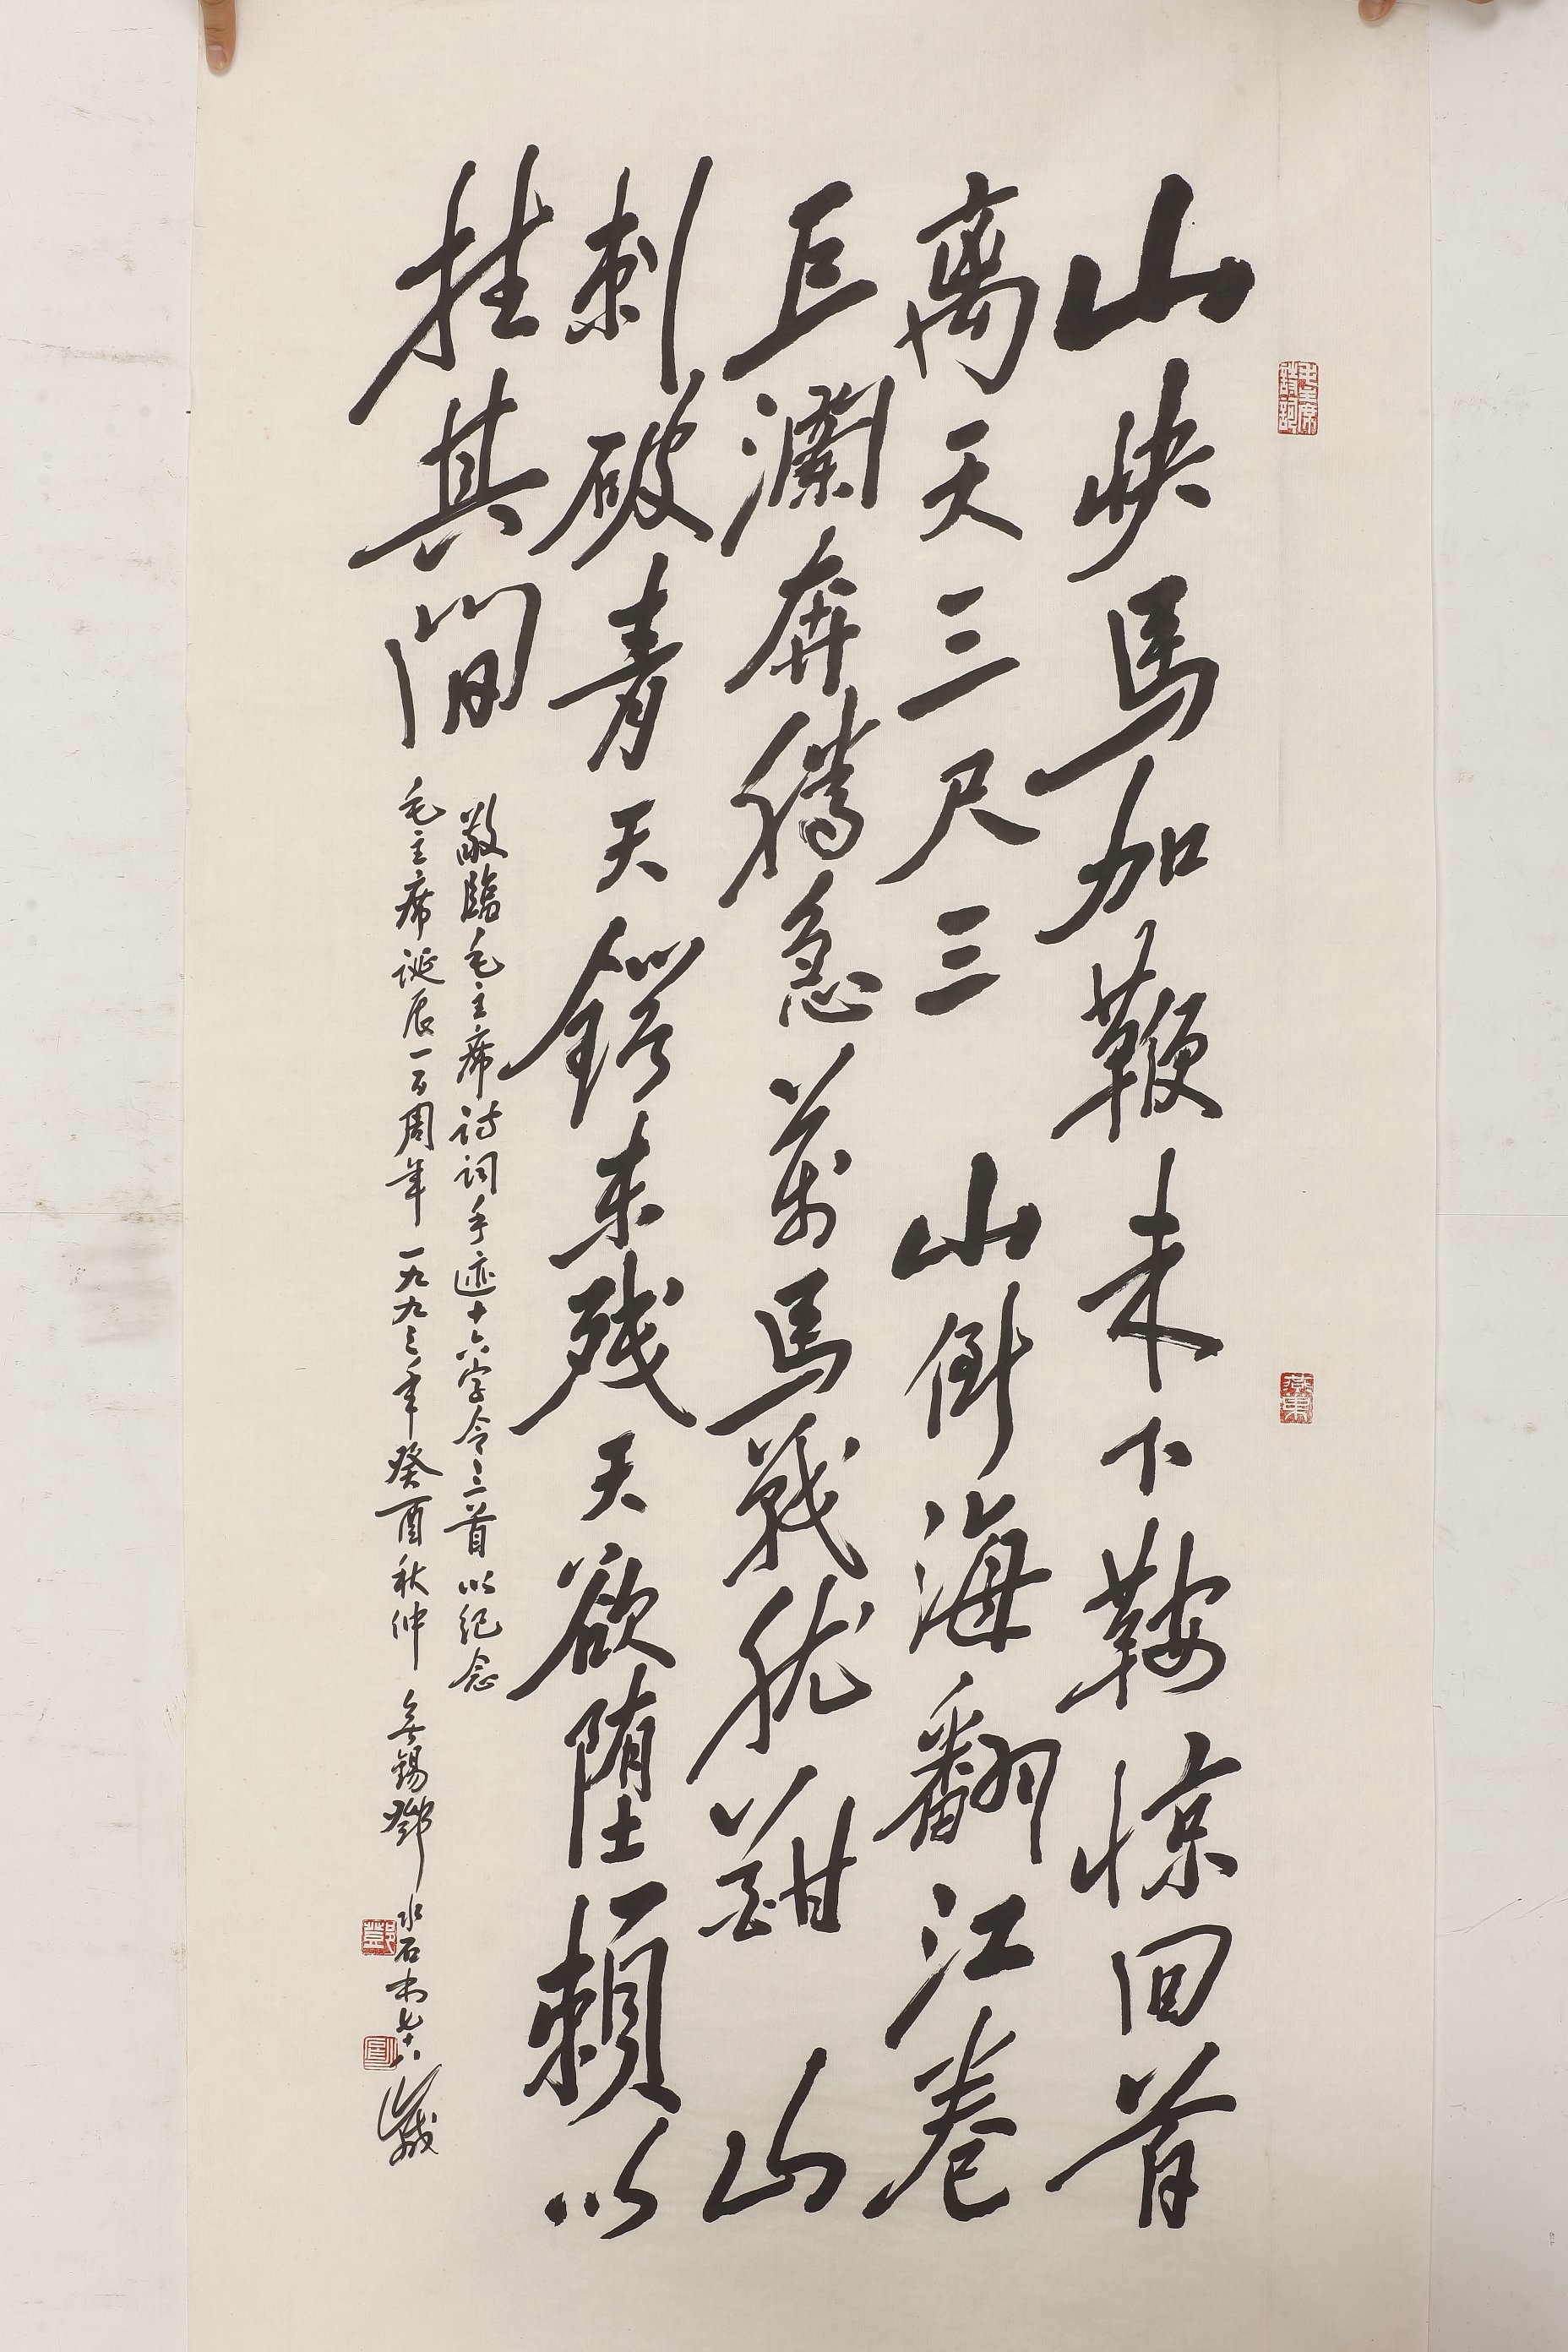 山快马加鞭未下鞍惊回首
离天三尺三 山倒海翻江卷
巨澜奔腾急万马战犹酣 山
刺破青天天锷未残天欲堕赖以
拄其间
敬臨毛主席诗词手迹十六字令三首以纪念
毛主席诞辰一百周年 一九九三年癸酉秋仲 无锡鄧水石七十八歲
毛主席
詩詞